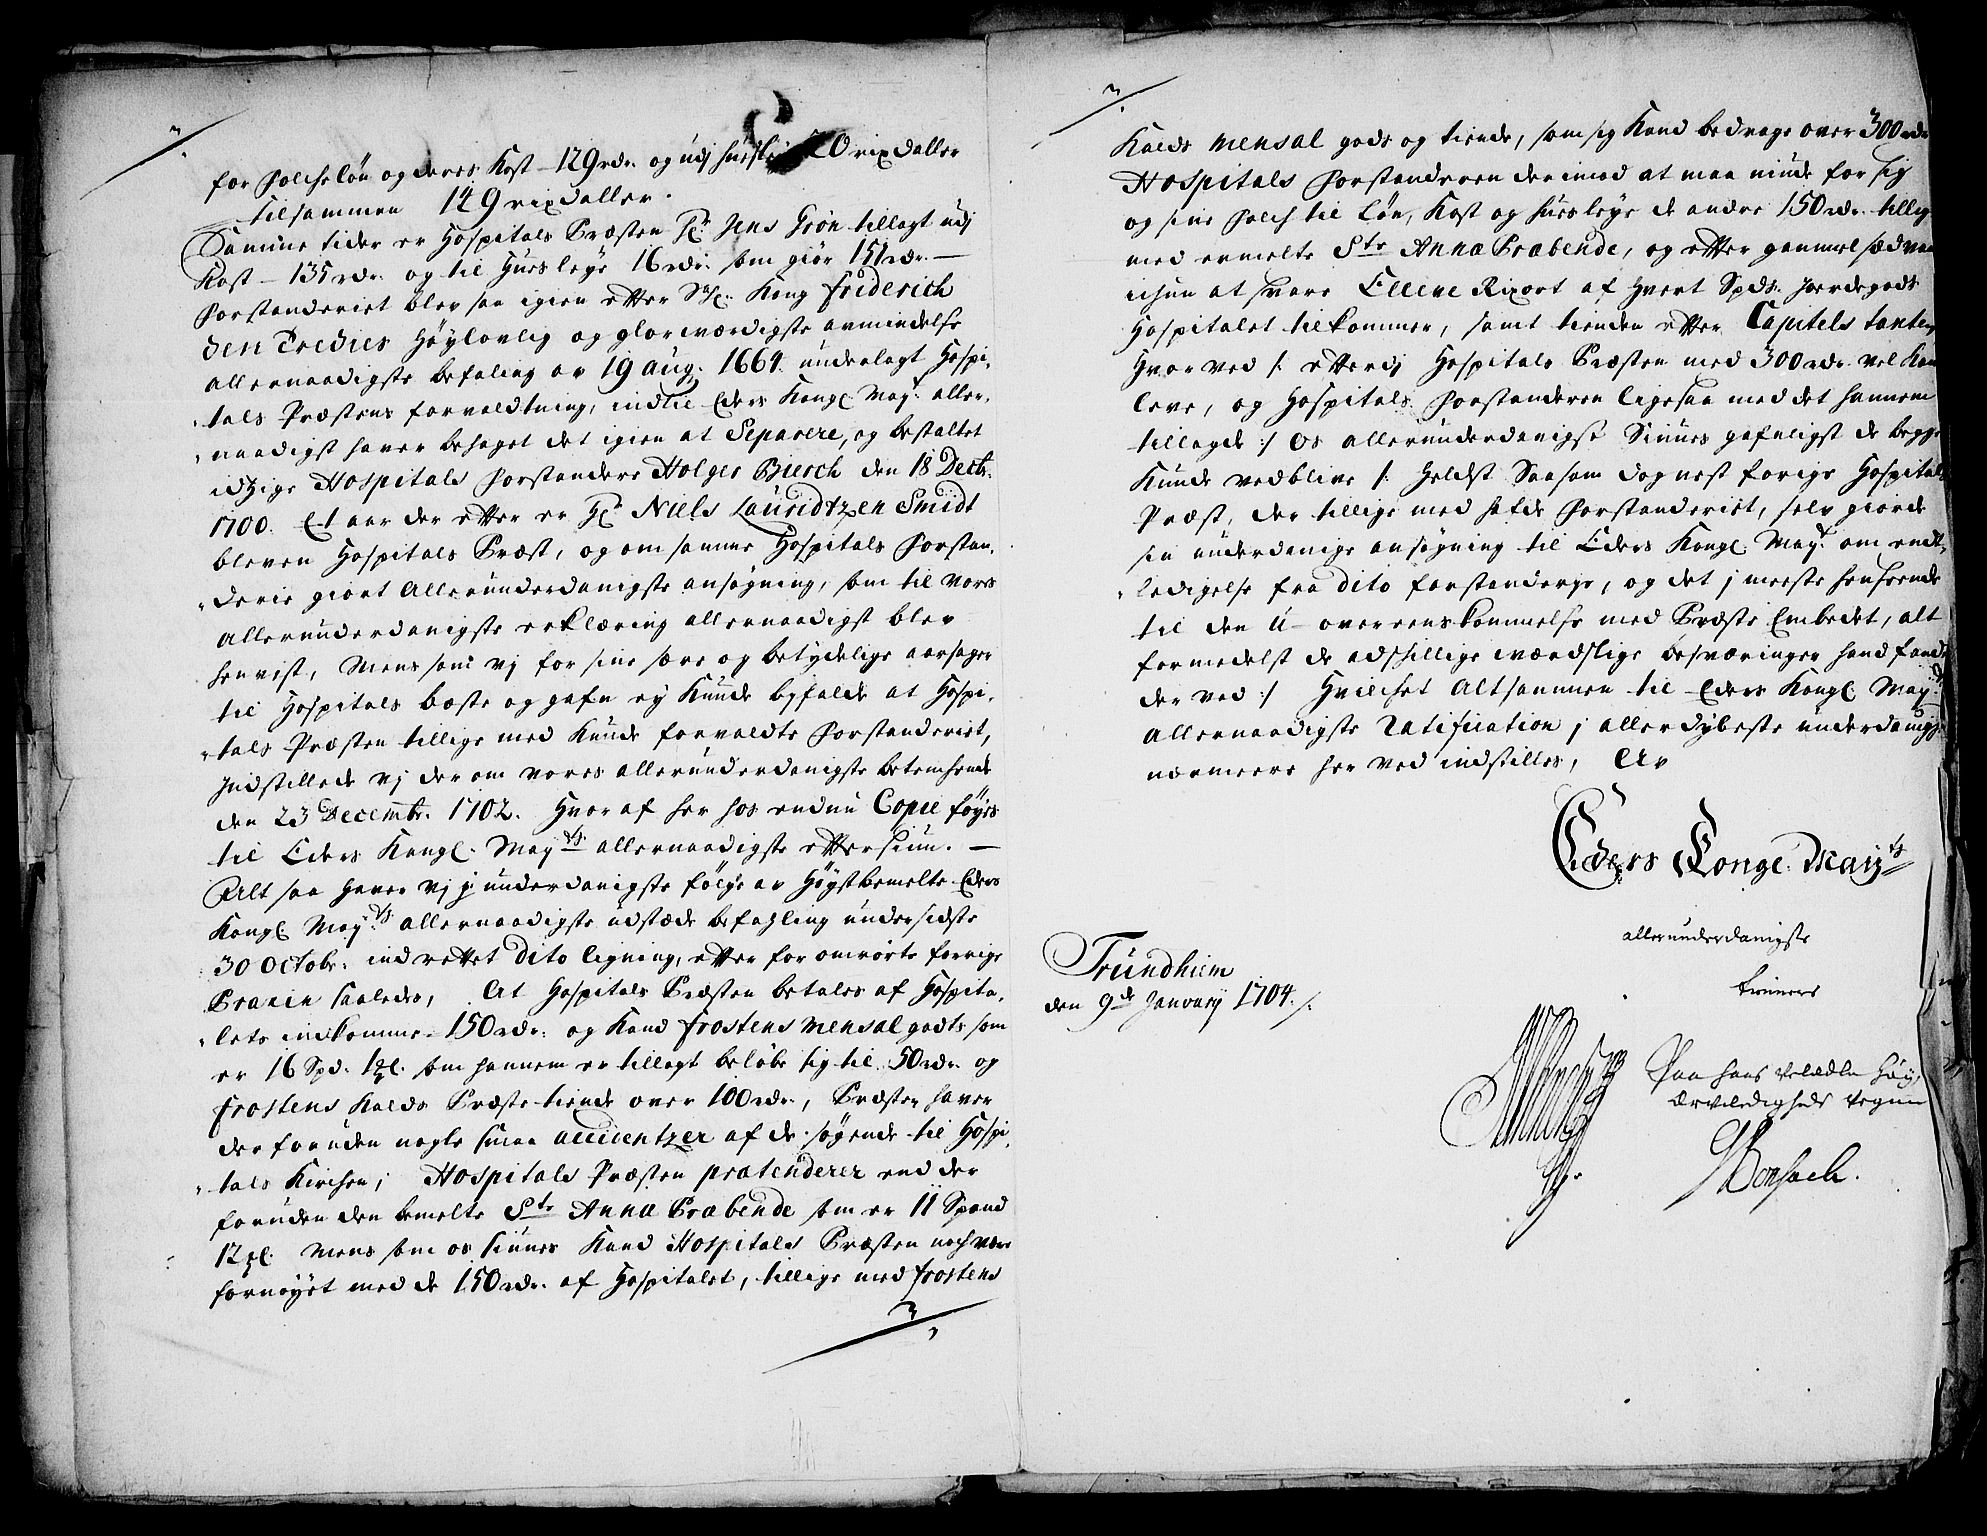 for Folcheløn og deres Kost 129 rdr. og udj huusleye 20 rixdaller
tilsammen 149 rixdaller.
Samme tider er Hospitals Præsten Hr. Jens Grøn tillagt udj
Kost 135 rdr. og til Huusleye 16 rdr. som giør 151 rdr.
Forstanderiet blev saa igien efter Kong Friderich
den Tredies Høylovlig og glorværdigste amindelse
allernaadigste befaling av 19 aug. 1664 underlagt Hospi-
tals Præstens forvaldtning, indtil Eders Kongl. Mayt. aller-
naadigst haver behaget det igien at Separere, og bestaltet
idtzige Hospitals Forstandere Holger Bierch den 18 Decbr.
1700. Et aar der effter er Hr. Niels Lauridtzen Smidt
bleven Hospitals Præst, og om samme Hospitals Forstan-
derie giort Allerunderdanigste ansøgning, som til vores
allerunderdanigste erklæring allernaadigst blev
henvist, Mens som vj for sine sære og betydelige aarsager
til Hospitals bæste og gafn ey Kunde byfalde at Hospi-
tals Præsten tillige med Kunde forvaldte Forstanderiet,
Indstillede vj der om vores allerunderdanigste betenchende
den 23 Decembr. 1702. Hvor af her hos endnu Copie føyes
til Eders Kongl. Mayts. allernaadigste efftersiun.
Alt saa haver vj j underdanigste følge av Høystbemelte Eders
Kongl. Mayts. allernaadigste udstæde befahling under sidste
30 Octobr. indrettet dito ligning, effter for omrørte forrige
Praxin saaledes, At Hospitals Præsten betales af Hospita-
lets indkomme 150 rdr. og Kand Frostens Mensal gods som
er 16 Spd. som hannem er tillagt beløbe sig til 50 rdr. og
Frostens Kalds Præste tiende over 100 rdr., Præsten haver
der foruden nogle smaa accidentzer af de søgende til Hospi-
tals Kirchen; Hospitals Præsten prætenderer end der
foruden den bemelte Stæ Annæ Præbende som er 11 Spand
12 Mens som os siunes Kand Hospitals Præsten noch være
fornøyet med de 150 rdr. af Hospitalet, tillige med Frostens
Kalds Mensal gods og tiende, som sig Kand bedrage over 300 rdr.
Hospitals Forstanderen derimod at maa niude for sig
og sine Folch til løn, Kost og huusleye de andre 150 rdr. tillige
med ermelte Stæ Annæ Præbende, og effter gammel sædvan
at svare Eleve Rixort af Hvert Spds. Jordegods
Hospitalet tilkommer, samt tienden effter Capitels taxten
Hvorved /: efterdj Hospitals Præsten med 300 rdr. vel Kan
leve, og Hospitals Forstanderen ligesaa med det hannem
tillagde :/ os allerunderdanigst Siunes gafnligst de begge
Kunde vedblive /: Helst Saasom dog nest forige Hospitals
Præst, der tillige med hafde Forstanderiet, selv giorde
sin underdanige ansøgning til Eders Kongl. Mayt. om endt-
ledigelse fra dito forstanderye, og det j meeste henseende
til den U-overeenskommelse med Præste Embedet, alt
formedelst de adskillige wærdslige besværinger hand fandt
der ved :/ Hvilchet Altsammen til Eders Kongl. Mayts.
Allernaadigste Ratification j allerdybeste underdanig
nærmeere her ved indstilles, Av
Eders Kongl. Mayts
allerunderdanigste
tienere
Trundhiem
den 9de January 1704.
Paa hans velædle Høy-
ærværdigheds vegne